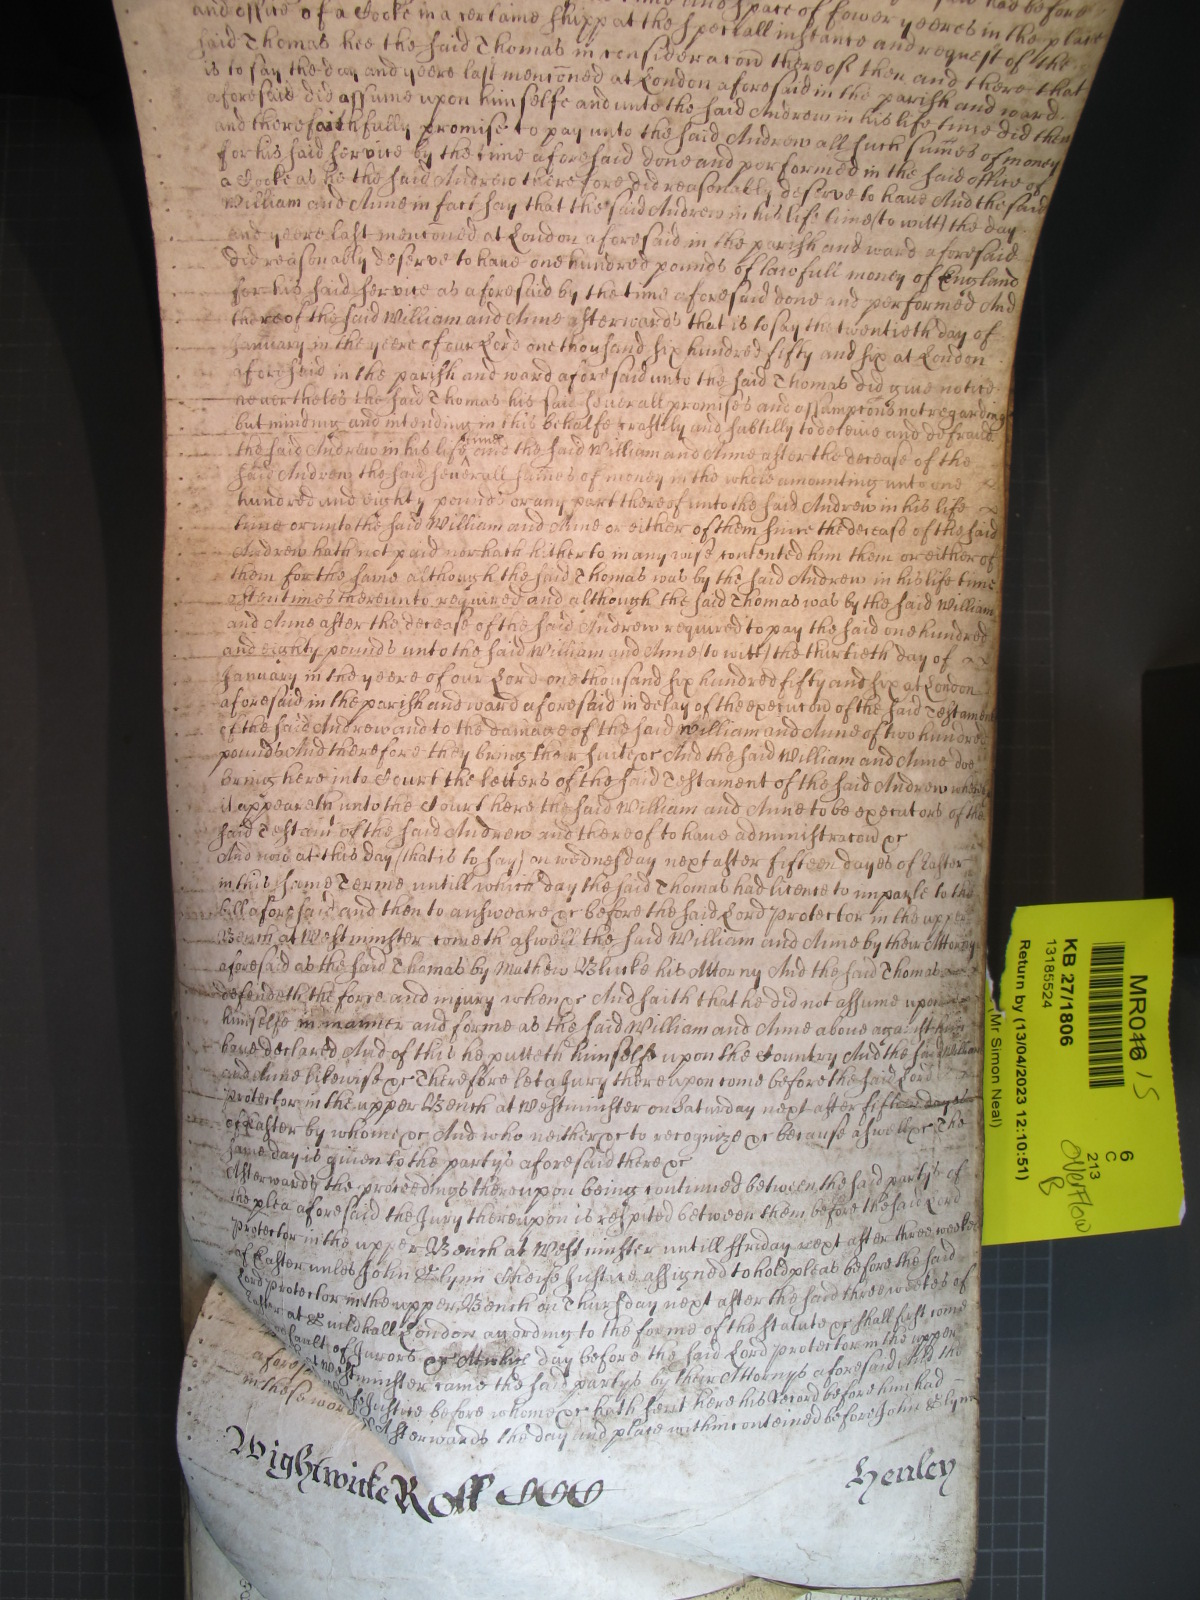 and office of a Cocke in a certaine shipp at the speciall instance and request of the
said Thomas hee the said Thomas in consideracon thereof then and there that
is to say the day and yeere last menconed at London aforesaid in the parish and ward
aforesaid did assume upon himselfe and unto the said Andrew in his life time did then
and there faithfully promise to pay unto the said Andrew all such summes of money
for his said service by the time aforesaid done and performed in the said office of
a Cocke as he the said Andrew therefore did reasonably deserve to have And the said
William and Anne in fact say that the said Andrew in his life time (to witt) the day
and yeere last menconed at London aforesaid in the parish and ward aforesaid
did reasonably deserve to have one hundred pounds of lawfull money of England
for his said service as aforesaid by the time aforesaid done and performed And
thereof the said William and Anne afterwards that is to say the twentieth day of
January in the yeere of our Lord one thousand six hundred fifty and six at London
aforesaid in the parish and ward aforesaid unto the said Thomas did give notice
neverthelesse the said Thomas his said severall promises and assumptions not regarding
but minding and intending in this behalfe craftily and subtilly to deceive and defraud
the said Andrew in his life time and the said William and Anne after the decease of the
said Andrew the said severall summes of money in the whole amounting unto one
hundred and eighty pounds or any part thereof unto the said Andrew in his life
time or unto the said William and Anne or either of them since the decease of the said
Andrew hath not paid nor hath hitherto in any wise contented him them or either of
them for the same although the said Thomas was by the said Andrew in his life time
oftentimes thereunto required and although the said Thomas was by the said William
and Anne after the decease of the said Andrew required to pay the said one hundred
and eighty pounds unto the said William and Anne (to witt) the thirtieth day of
January in the yeere of our Lord one thousand six hundred fifty and six at London
aforesaid in the parish and ward aforesaid in delay of the execucon of the said Testament
of the said Andrew and to the damage of the said William and Anne of two hundred
pounds And therefore they bring their suite &c And the said William and Anne doe
bring here into Court the letters of the said Testament of the said Andrew whereby
it appeareth unto the Court here the said William and Anne to be executors of the
said Testamt of the said Andrew and thereof to have administracon &c
And now at this day (that is to say) on wednesday next after fifteen dayes of Easter
in this same Terme untill which day the said Thomas had licence to imparle to the
bill aforesaid and then to answeare &c before the said Lord Protector in the upper
Bench at Westminster cometh aswell the said William and Anne by their Attorny
aforesaid as the said Thomas by Mathew Blucke his Attorny And the said Thomas
defendeth the force and injury when &c And saith that he did not assume upon
himselfe in manner and forme as the said William and Anne above against him
have declared And of this he putteth himselfe upon the Country And the said William
and Anne likewise &c Therefore let a Jury thereupon come before the said Lord
Protector in the upper Bench at Westminster on Saturday next after fifteen dayes
of Easter by whome &c And who neither &c to recognize &c because aswell &c The
same day is given to the partys aforesaid there &c
Afterwards the proceedings thereupon being continued between the said partys of
the plea aforesaid the Jury thereupon is respited between them before the said Lord
Protector in the upper Bench at Westminster untill Friday next after three weekes
of Easter unles John Glynn Cheife Justice assigned to hold pleas before the said
Lord Protector in the upper Bench on Thursday next after the said three weekes of
Easter at Guildhall London according to the forme of the statute &c shall first come
default of Jurors &c At which day before the said Lord Protector in the upper
Westminster came the said partys by their Attornys aforesaid And the
aforesaid Cheife Justice before whome &c hath sent here his record before him had
in these words Afterwards the day and place within conteined before John Glynn
Wightwicke Roll
Henley
MR046
KB 27/1806
13185524
Return by (13/04/2023 12:10:51)
(Mr Simon Neal)
6
C
213
overflow
B